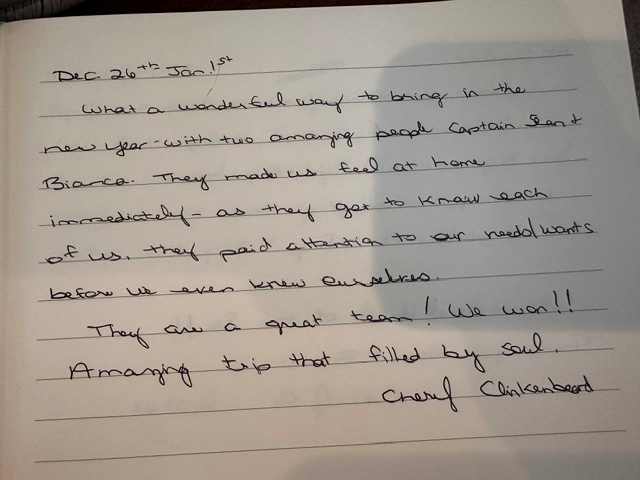 Dec. 26th Jan. 1st
What a wonderful way to bring in the
new year - with two amazing people Captain Sean &
Bianca. They made us feel at home
immediately - as they got to know each
of us, they paid attention to our needs/wants
before we even knew ourselves.
They are a great team! We won!!
Amazing trip that filled by soul.
Cheryl Clinkenbeard